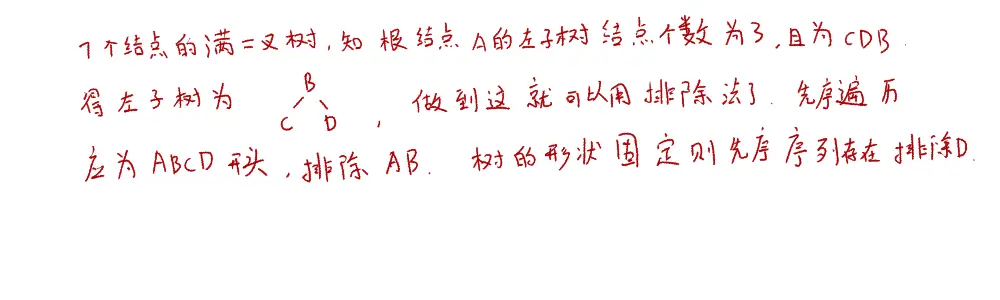 7个结点的满二叉树,知 根结点 A的左子树 结点个数为3,且为CDB.
得左子树为 B C D , 做到这就可以用排除法了. 先序遍历
应为 ABCD 开头,排除 AB. 树的形状固定则先序序列存在 排除D.